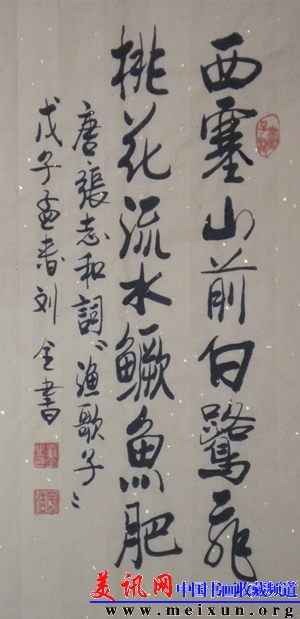 西塞山前白鹭飞
桃花流水鳜鱼肥
唐張志和詞〃渔歌子〃
戊子孟春刘全書
美讯网 中国书画收藏频道
www.meixun.org